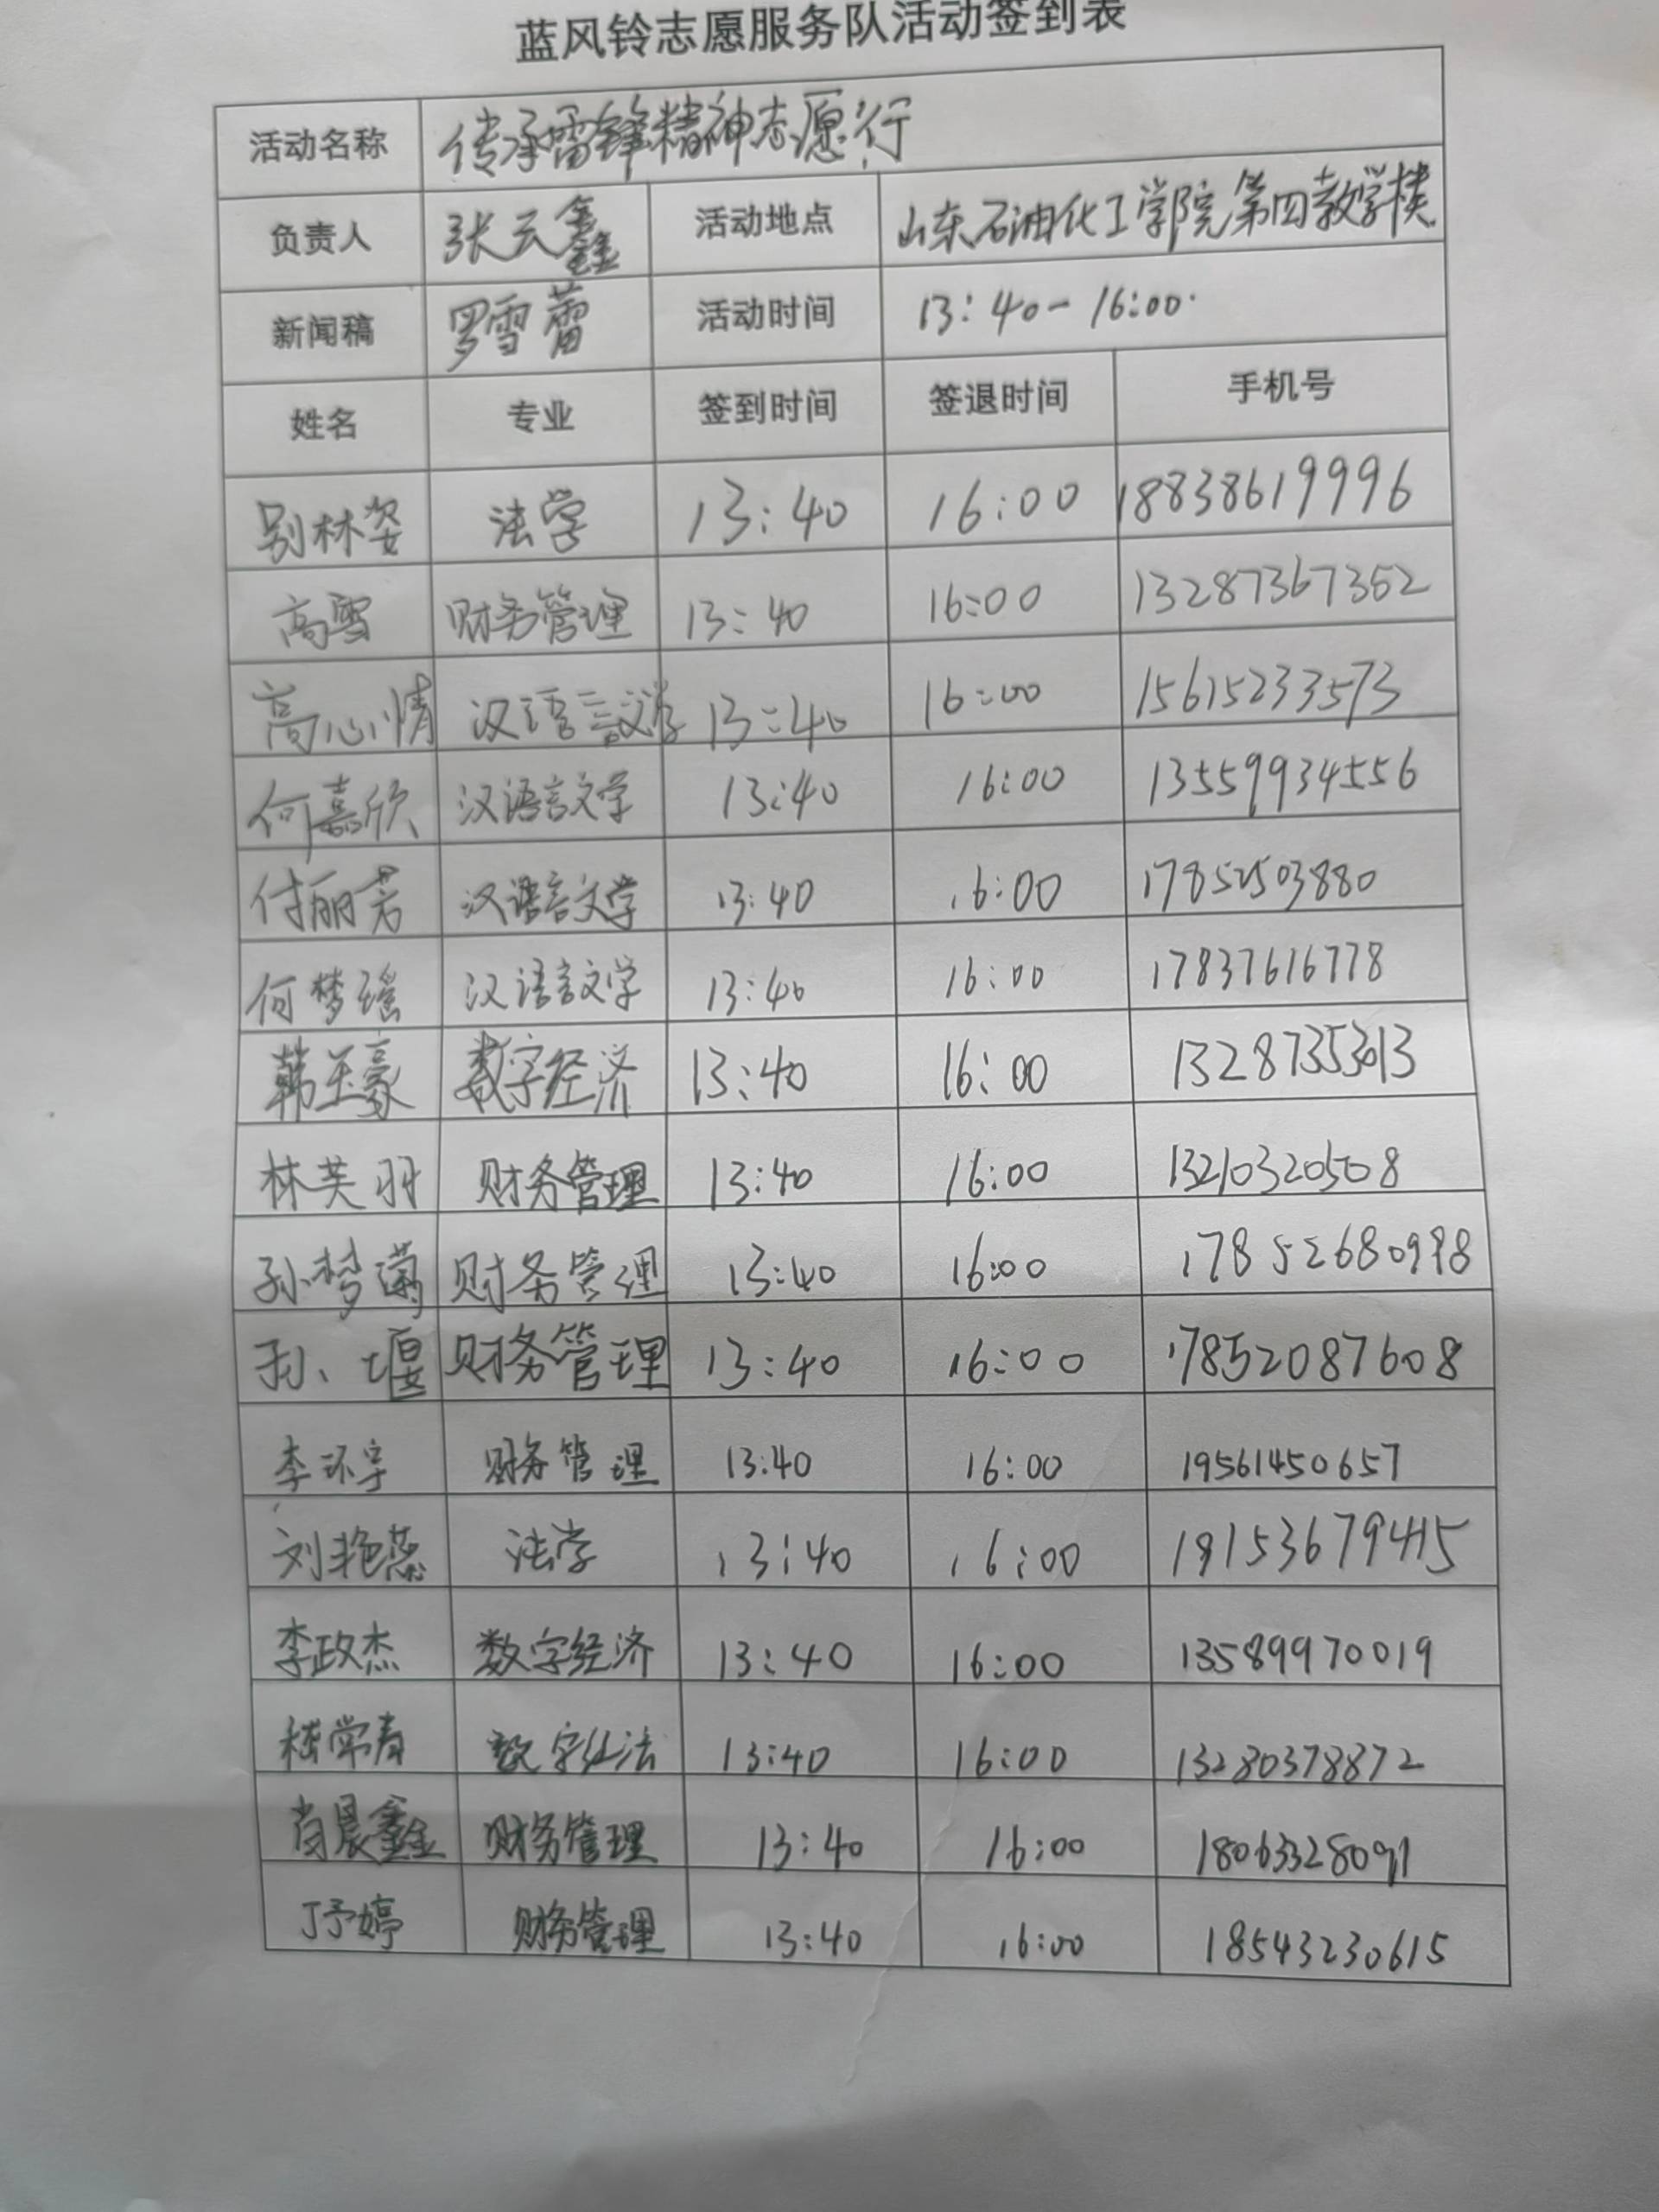 蓝风铃志愿服务队活动签到表
活动名称 传承雷锋精神志愿行
负责人 张云鑫 活动地点 山东石油化工学院第四教学楼
新闻稿 罗雪蕾 活动时间 13:40-16:00.
姓名 专业 签到时间 签退时间 手机号
别林姿 法学 13:40 16:00 18838619996
高雪 财务管理 13:40 16:00 13287367352
高心情 汉语言文学 13:40 16:00 15615233573
何嘉欣 汉语言文学 13:40 16:00 13559934556
付丽君 汉语言文学 13:40 16:00 17852503880
何梦瑶 汉语言文学 13:40 16:00 17837616778
韩玉豪 数字经济 13:40 16:00 13287353013
林芙羽 财务管理 13:40 16:00 13210320508
孙梦 财务管理 13:40 16:00 17852680998
孙 财务管理 13:40 16:00 17852087608
李环宇 财务管理 13:40 16:00 19561450657
刘艳蕊 法学 13:40 16:00 19153679415
李政杰 数字经济 13:40 16:00 13589970019
常青 数字 13:40 16:00 13280378872
肖晨鑫 财务管理 13:40 16:00 18063328091
丁予婷 财务管理 13:40 16:00 18543230615